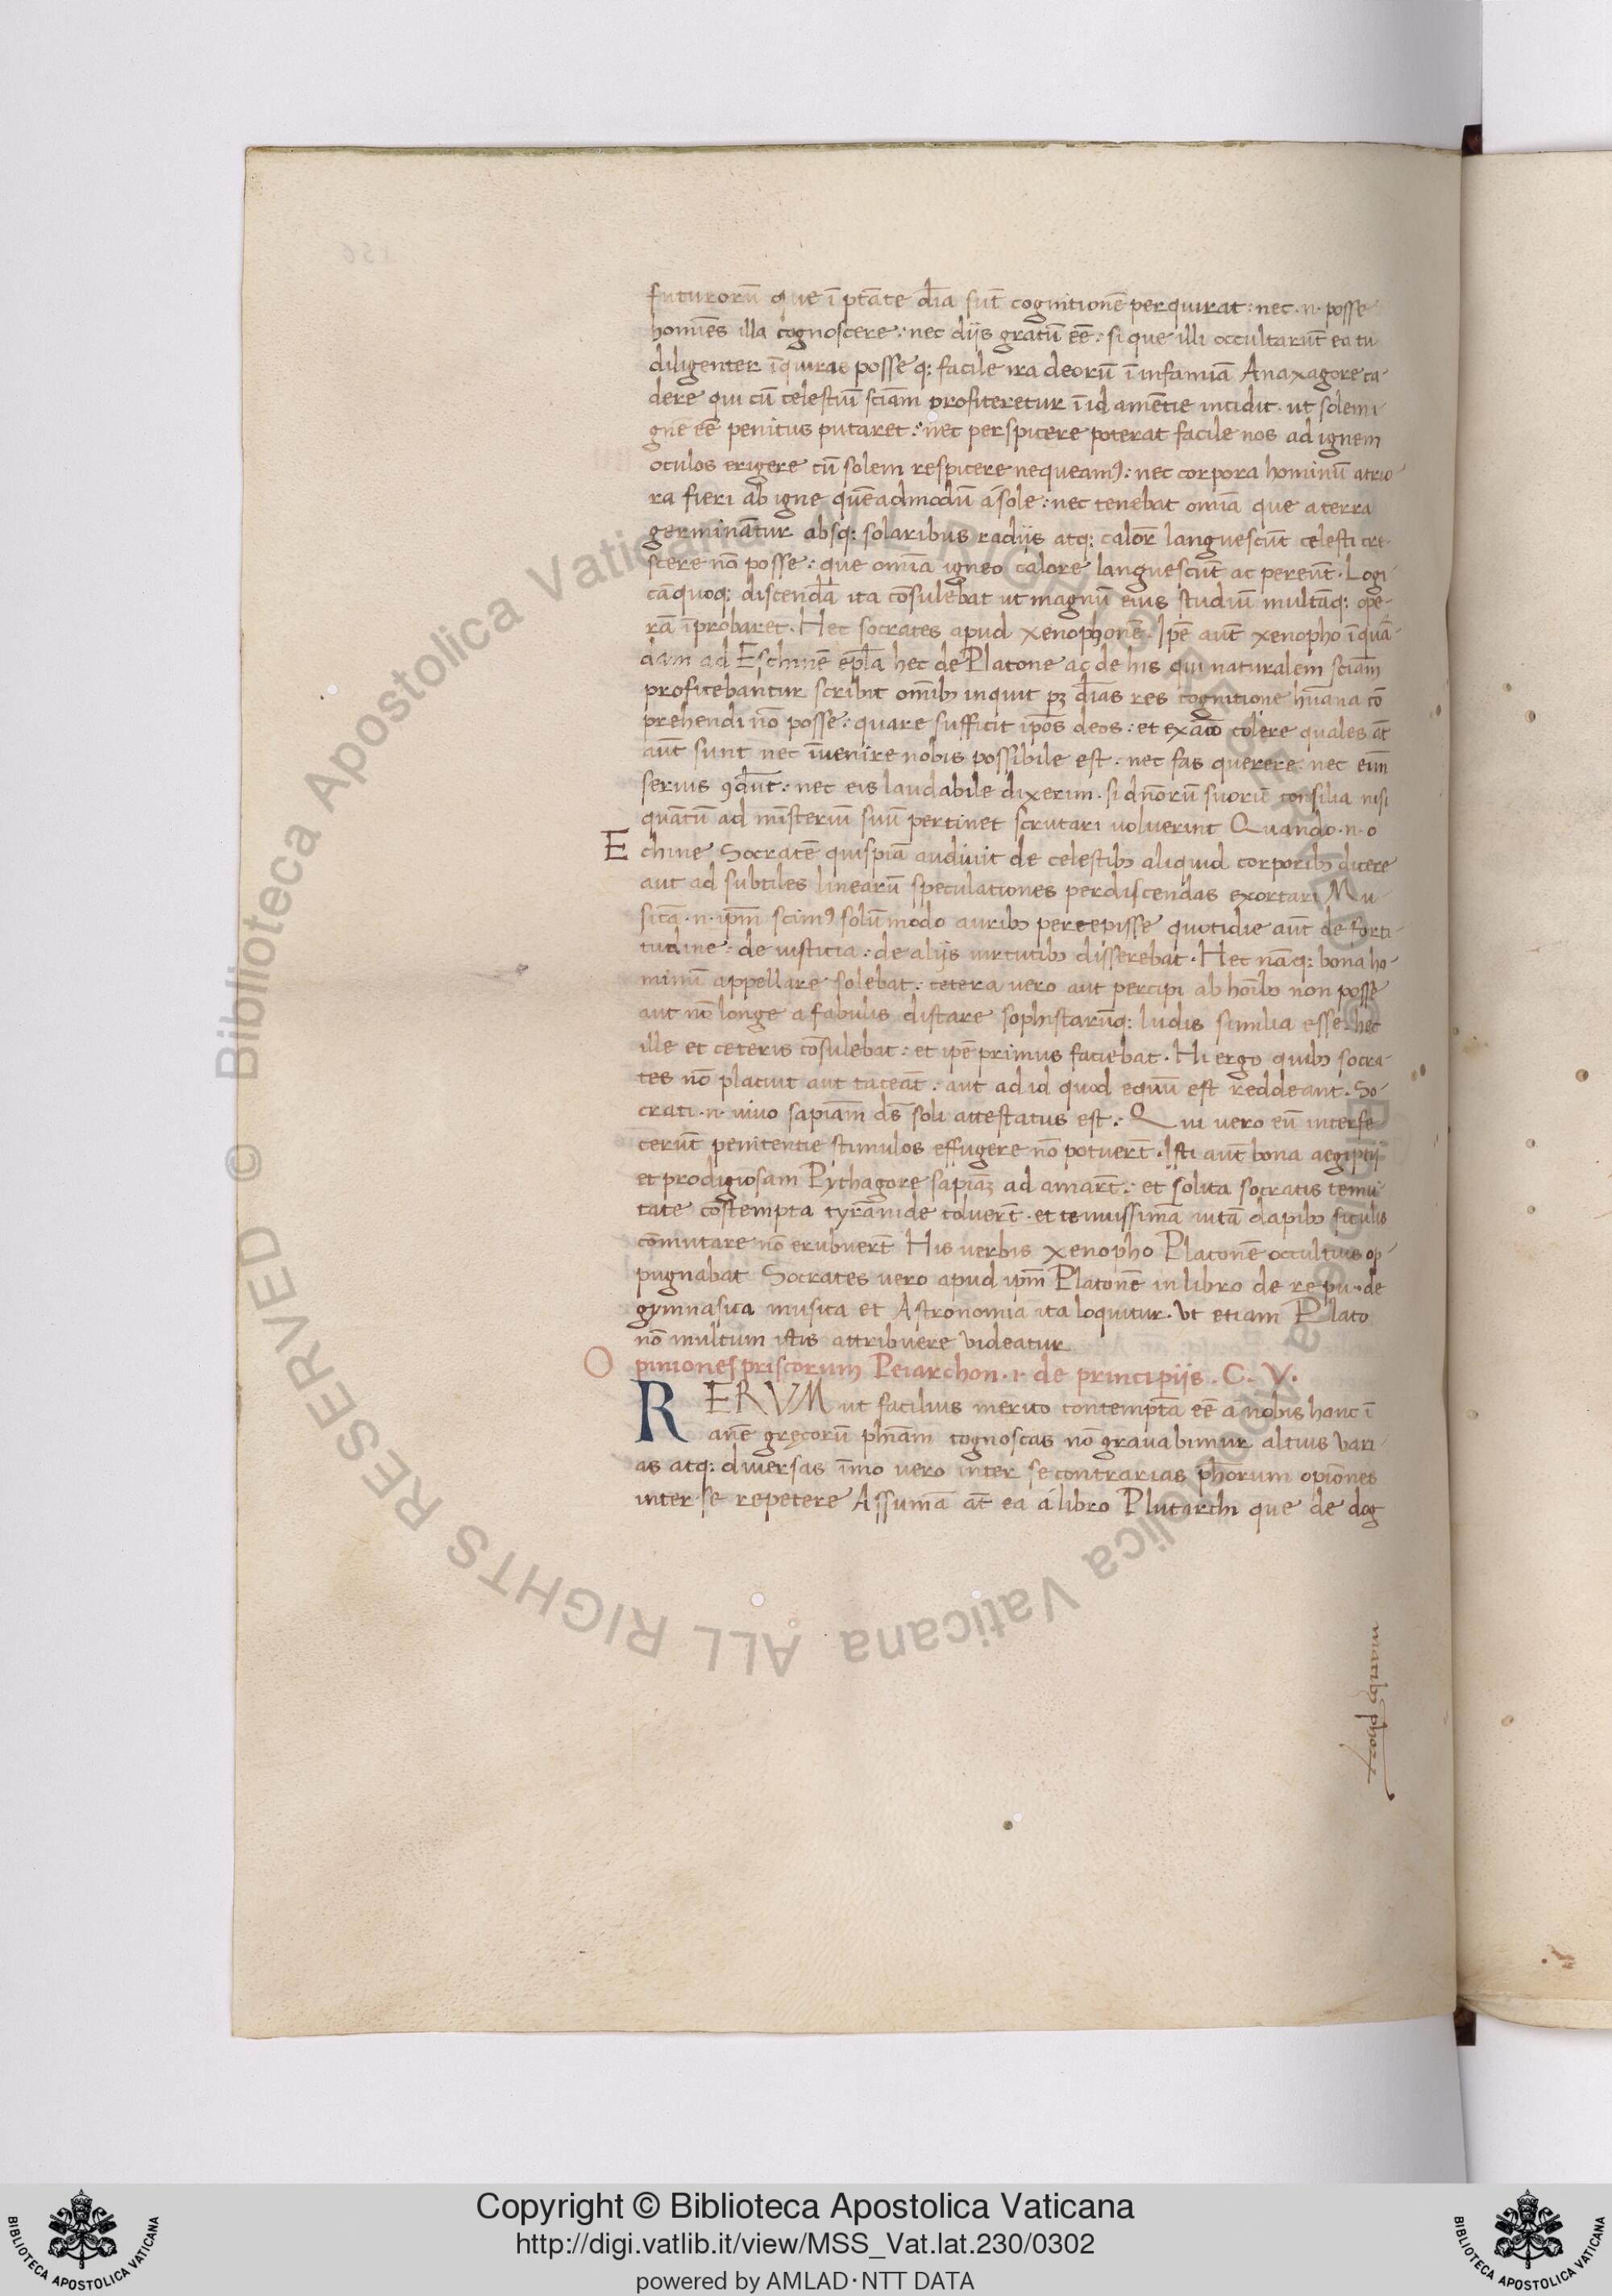 futurorū que ī ptāte dīa sūt cognitionē perquirat: nec .n. posse
homīes illa cognoscere: nec diis gratū eē: si que illi occultarūt ea tu
diligenter īquiras posseq: facile ira deorū ī infamiā Anaxagore ca-
dere qui cū celestiū sciam profiteretur ī id amētie incidit. ut solem i-
gne eē penitus putaret: nec perspicere poterat facile nos ad ignem
oculos erigere cū solem respicere nequeamꝰ: nec corpora hominū atrio-
ra fieri ab igne quēadmodū a sole: nec tenebat omīa que a terra
germinātur absq: solaribus radiis atq: calor languescūt celesti cre-
scere nō posse: que omīa igneo calore languescūt ac pereūt. Logi-
cāquoq: discendā ita cōsulebat ut magnū eius studiū multāq: ope-
rā īprobaret. Hec socrates apud xenophonē. Ipē aūt xenopho īquā-
dam ad Eschinē epl̄a hec de Platone ac de his qui naturalem sciam
profitebantur scribit omībꝰ inquit pꝫ dīas res cognitione hūana cō
prehendi nō posse: quare sufficit ip̄os deos: et ex aīo colere quales āt
aūt sunt nec īuenire nobis possibile est: nec fas querere: nec eīm
seruis ꝯdūt: nec eis laudabile dixerim. si dn̄orū suorū consilia nisi
quātū ad mīsteriū suū pertinet scrutari uoluerint Quando .n. o
Echine Socratē quispiā audiuit de celestibꝰ aliquid corporibꝰ dicere
aut ad subtiles linearū speculationes perdiscendas exortari Mu-
sicā .n. ipm̄ scimꝰ solūmodo auribꝰ percepisse quotidie aūt de forti-
tudine: de iusticia: de alijs uirtutibꝰ disserebat. Hec nāq: bona ho-
minū appellare solebat: cetera uero aut percipi ab hoībꝰ non posse
aut nō longe a fabulis distare sophistarūq: ludis similia esse hec
ille et ceteris cōsulebat: et ipē primus faciebat. Hi ergo quibꝰ socra-
tes nō placuit aut taceāt: aut ad id quod equū est reddeant. So-
crati .n. uiuo sapiam ds̄ soli attestatus est: Qui uero eū interfe
cerūt penitentie stimulos effugere nō potuerūt. Isti aūt bona aegiptij
et prodigiosam Pythagore sapiaꝫ ad amarūt: et solita socratis tenui-
tate cōtempta tyrānide coluerūt. et tenuissimā uitā dapibꝰ siculis
cōmutare nō erubuerūt His uerbis xenopho Platonē occultius op-
pugnabat Socrates uero apud ipm̄ Platonē in libro de re pu. de
gymnasica musica et Astronomia ita loquitur. Vt etiam Plato
nō multum istis attribuere videatur
Opiniones priscorum Peiarchon .i. de principijs. C. V.
RERVM ut facilius merito contemptā eē a nobis hanc ī
anē gręcorū phīam cognoscas nō grauabimur altius vari-
as atq: diuersas īmo uero inter se contrarias ph̄orum opiōnes
inter se repetere Assumā āt ea a libro Plutarchi que de dog
matibꝰ phoꝝ
Copyright © Biblioteca Apostolica Vaticana
http://digi.vatlib.it/view/MSS_Vat.lat.230/0302
powered by AMLAD·NTT DATA
BIBLIOTECA APOSTOLICA VATICANA
BIBLIOTECA APOSTOLICA VATICANA
© Biblioteca Apostolica Vaticana ALL RIGHTS RESERVED